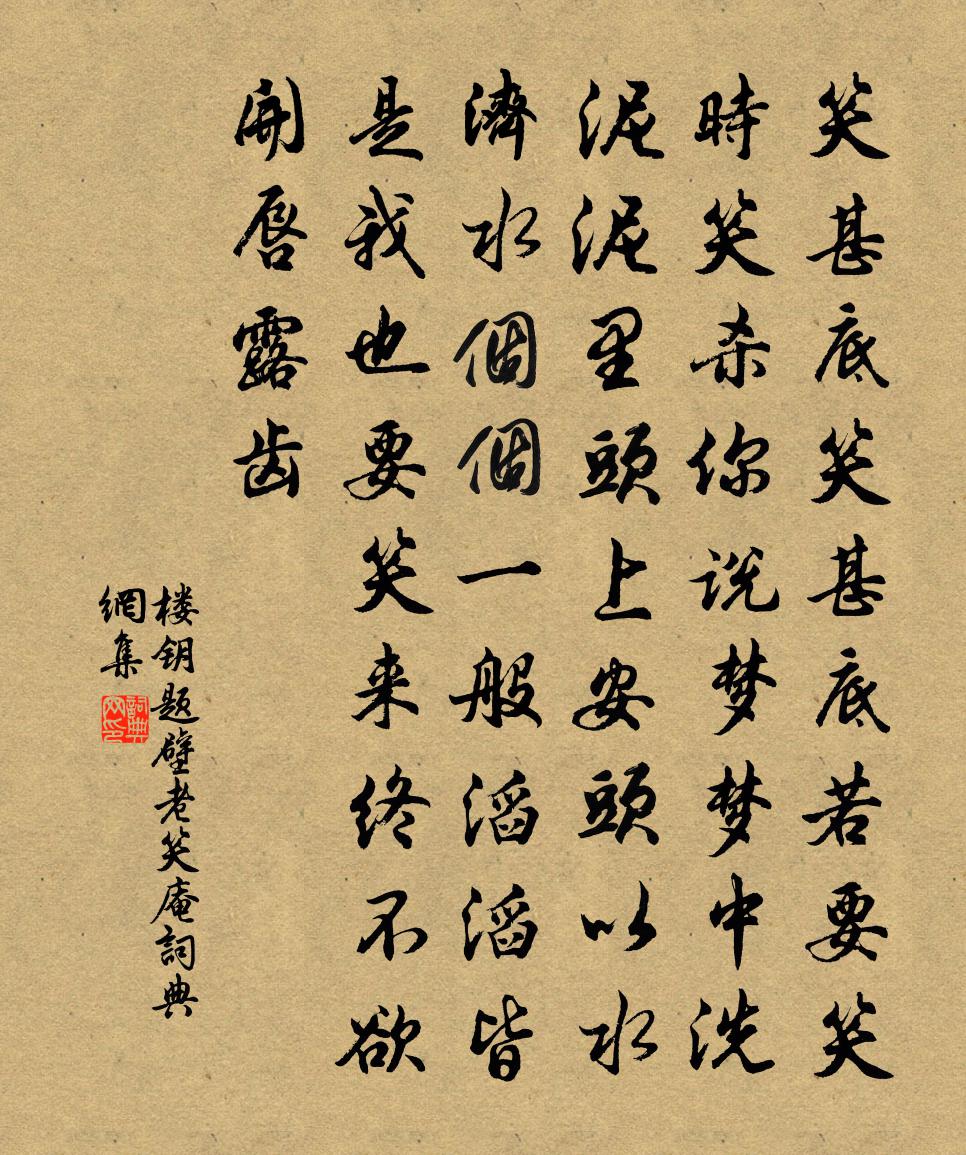 笑甚底笑甚底若要笑
時笑杀你说梦梦中洗
泥泥里頭上安頭以水
濟水個個一般滔滔皆
是我也要笑来终不欲
開唇露齿
楼钥题壁老笑庵詞典
網集
詞典網印